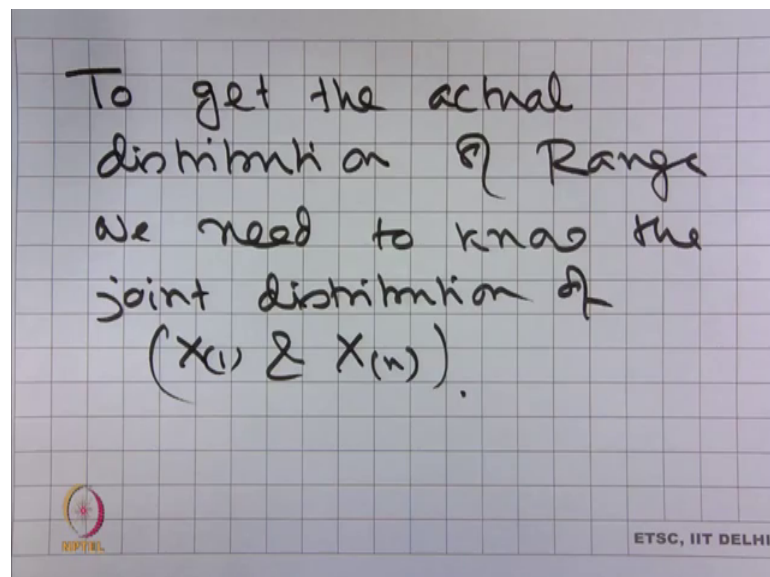 To get the actual
distribution of Range
we need to know the
joint distribution of
(X(1) & X(n)).
NPTEL
ETSC, IIT DELHI